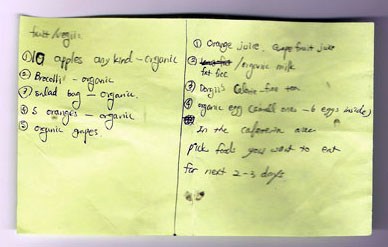 fruit/veggie
① 10 apples any kind - organic
② Brocolli - organic
③ salad bag - organic
④ 5 oranges - organic
⑤ organic grapes
① Orange juice, Grapefruit juice
② fat free /organic milk
③
④ organic egg (small one - 6 eggs inside)
in the cafeteria area
pick foods you want to eat
for next 2-3 days